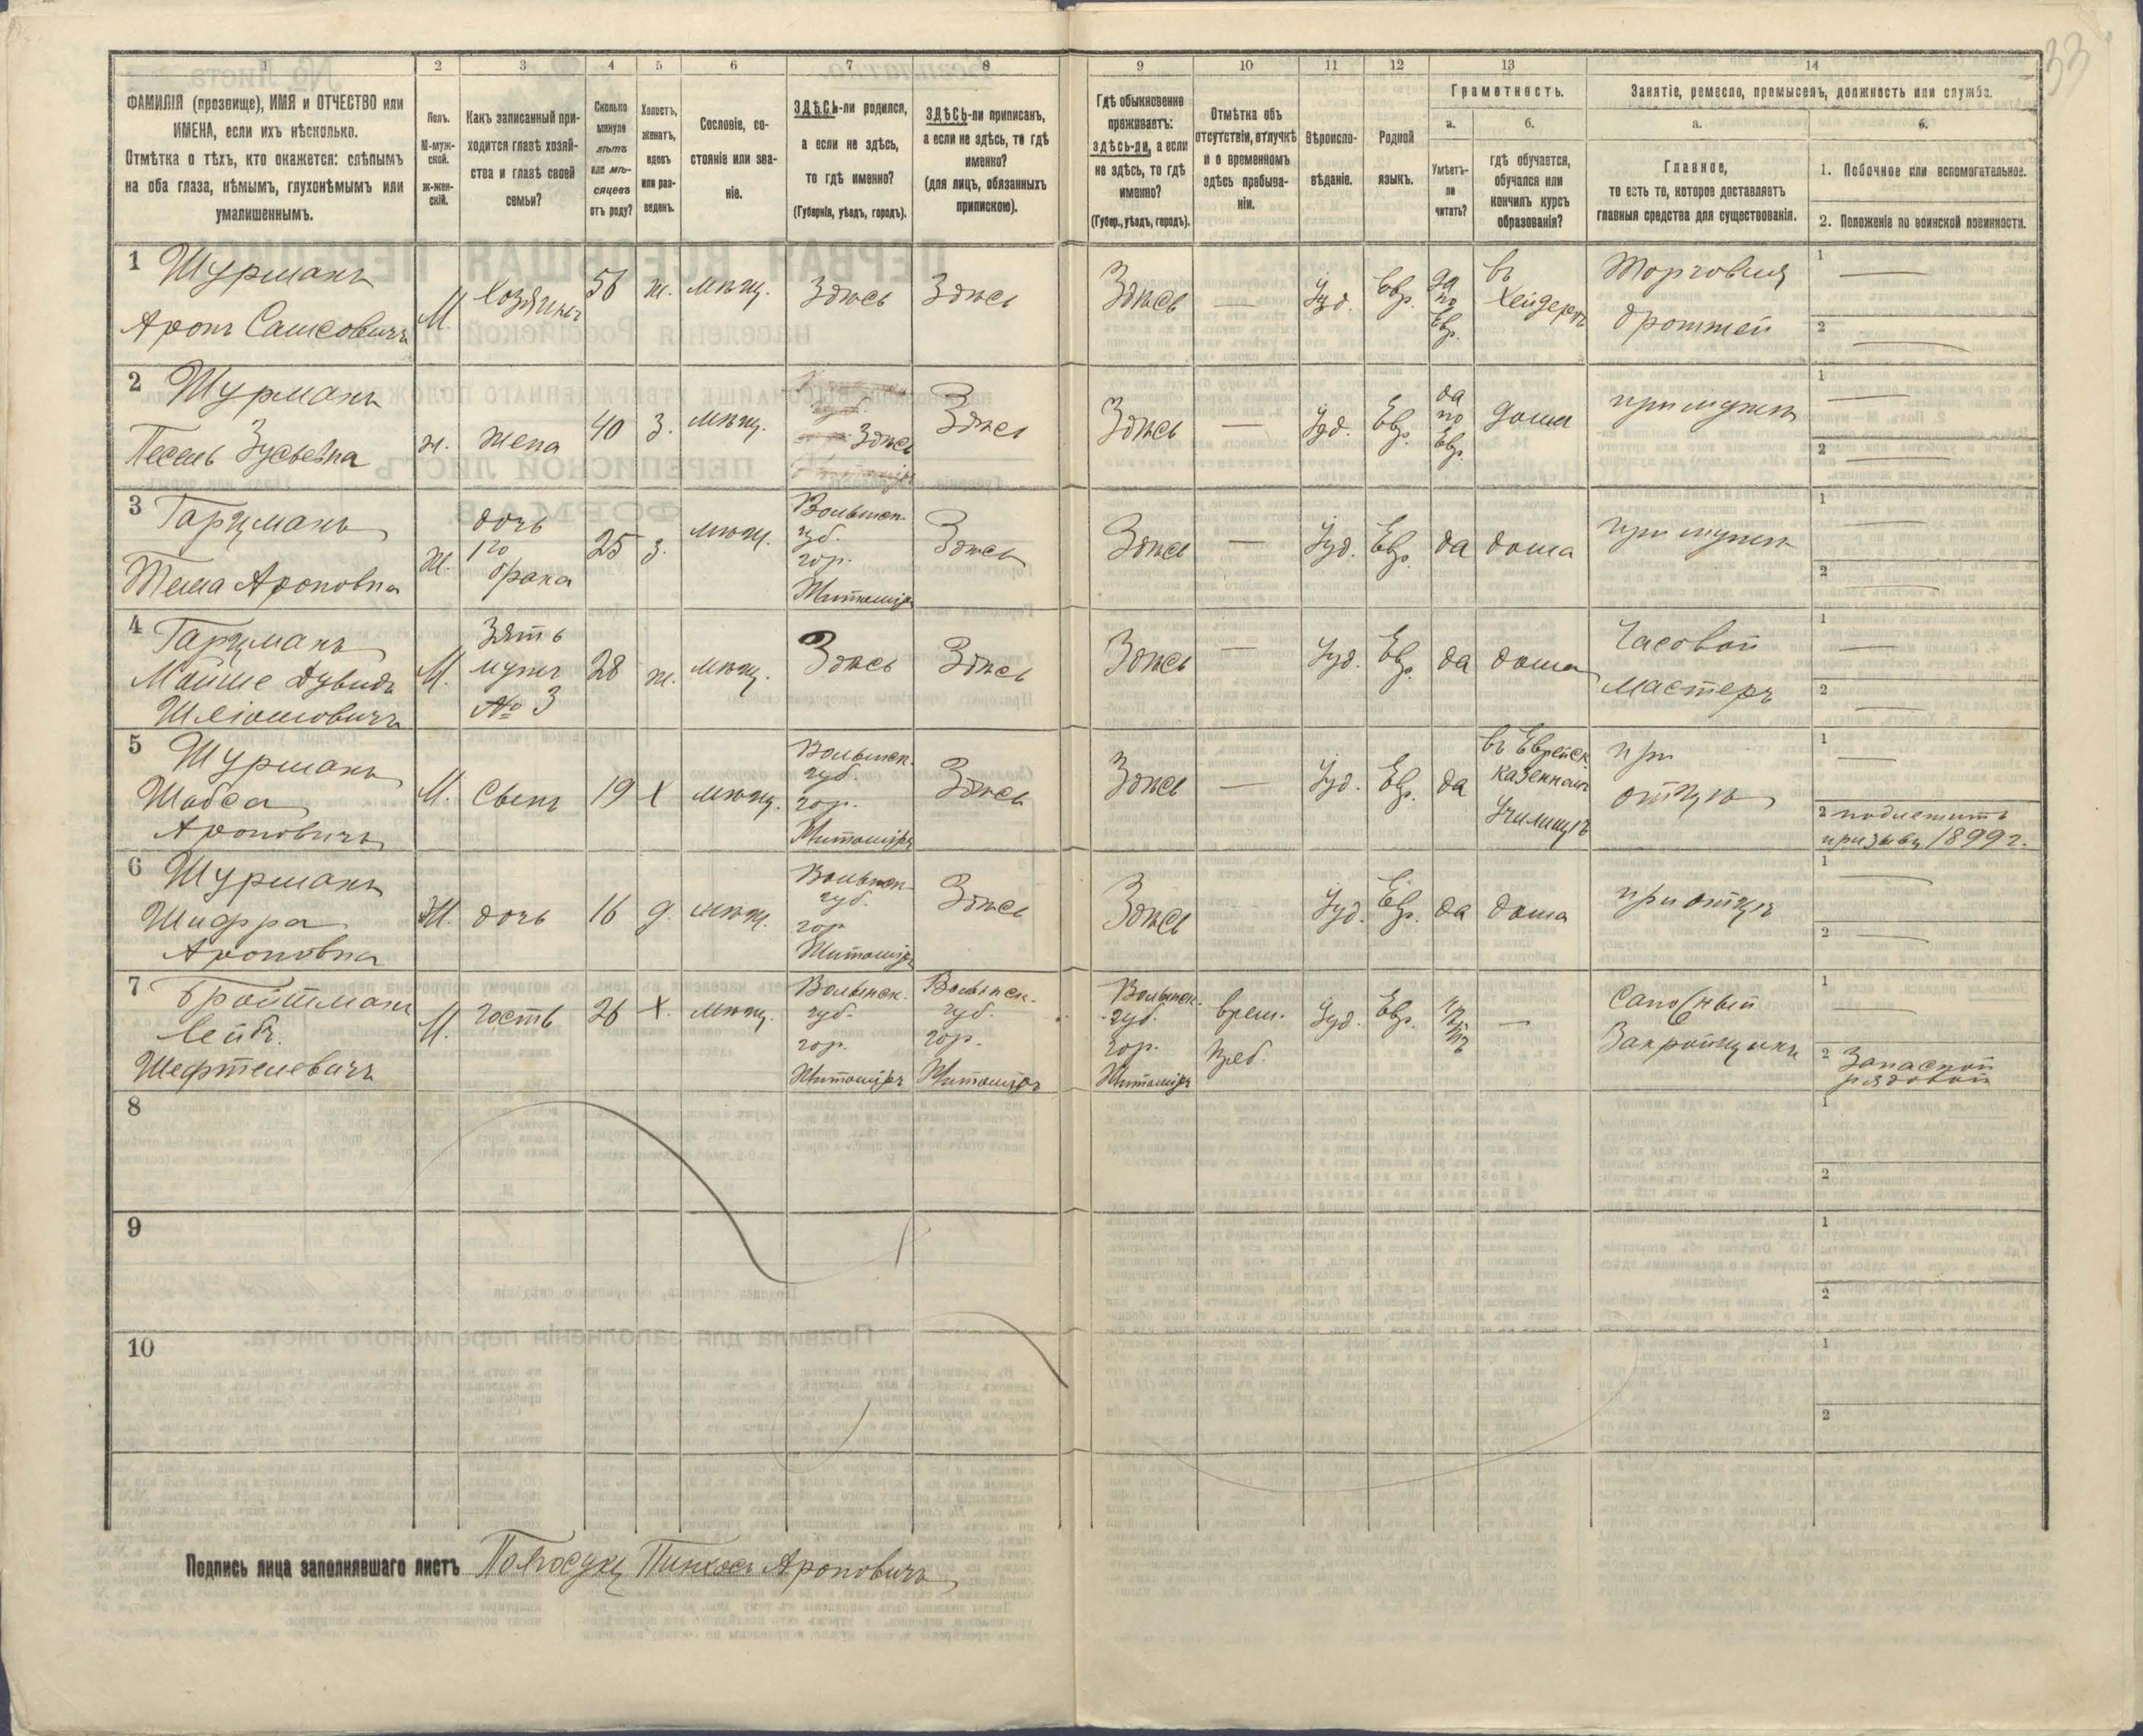 33
1 2 3 4 5 6 7 8 9 10 11 12 13 14
ФАМИЛІЯ (прозвище), ИМЯ и ОТЧЕСТВО или
ИМЕНА, если ихъ нѣсколько.
Отмѣтка о тѣхъ, кто окажется: слѣпымъ
на оба глаза, нѣмымъ, глухонѣмымъ или
умалишеннымъ.
Полъ.
М-муж-
ской.
ж-жен-
скій.
Какъ записанный при-
ходится главѣ хозяй-
ства и главѣ своей
семьи?
Сколько
минуло
лѣтъ
или мѣ-
сяцевъ
отъ роду?
Холостъ,
женатъ,
вдовъ
или раз-
веденъ.
Сословіе, со-
стояніе или зва-
ніе.
ЗДѢСЬ-ли родился,
а если не здѣсь,
то гдѣ именно?
(Губернія, уѣздъ, городъ).
ЗДѢСЬ-ли приписанъ,
а если не здѣсь, то гдѣ
именно?
(для лицъ, обязанныхъ
припискою).
Гдѣ обыкновенно
проживаетъ:
здѣсь-ли, а если
не здѣсь, то гдѣ
именно?
(Губер., уѣздъ, городъ).
Отмѣтка объ
отсутствіи, отлучкѣ
и о временномъ
здѣсь пребыва-
ніи.
Вѣроиспо-
вѣданіе.
Родной
языкъ.
Грамотность.
а.
Умѣетъ-
ли
читать?
б.
гдѣ обучается,
обучался или
кончилъ курсъ
образованія?
Занятіе, ремесло, промыселъ, должность или служба.
а.
Главное,
то есть то, которое доставляетъ
главныя средства для существованія.
б.
1. Побочное или вспомогательное.
2. Положеніе по воинской повинности.
1 Шурманъ
Аронъ
М.
Хозяинъ
56
ж.
мѣщ.
Здѣсь
Здѣсь
Здѣсь
—
Іуд.
Евр.
да
по
Евр.
въ
Хейдерѣ
Торговля
дрожжей
1 —
2 —
2 Шурманъ
Песель Зусьевна
ж.
жена
40
з.
мѣщ.
Здѣсь
Здѣсь
Здѣсь
—
Іуд.
Евр.
да
по
Евр.
дома
при мужѣ
1 —
2 —
3 Гарцманъ
Тема Ароновна
ж.
дочь
1го
брака
25
з.
мѣщ.
Волынск.
губ.
гор.
Житоміръ
Здѣсь
Здѣсь
—
Іуд.
Евр.
да
дома
при мужѣ
1 —
2 —
4 Гарцманъ
Мойше Дувидъ
Шліомовичъ
М.
Зять
мужъ
№ 3
28
ж.
мѣщ.
Здѣсь
Здѣсь
Здѣсь
—
Іуд.
Евр.
да
дома
Часовой
мастеръ
1 —
2 —
5 Шурманъ
Шабса
Ароновичъ
М.
Сынъ
19
х
мѣщ.
Волынск.
губ.
гор.
Житоміръ
Здѣсь
Здѣсь
—
Іуд.
Евр.
да
въ Еврейск.
казенномъ
Училищѣ
при
отцѣ
1 —
2 подлежитъ
призыву 1899 г.
6 Шурманъ
Шифра
Ароновна
Ж.
дочь
16
д.
мѣщ.
Волынск.
губ.
гор
Житоміръ
Здѣсь
Здѣсь
Іуд.
Евр.
да
дома
при отцѣ
1 —
2 —
7 Бройтманъ
Лейбъ
Шефтелевичъ
М.
гость
26
х.
мѣщ.
Волынск.
губ.
гор.
Житоміръ
Волынск.
губ.
гор.
Житоміръ
Волынск.
губ.
гор.
Житоміръ
врем.
преб.
Іуд.
Евр.
нѣтъ
—
Сапожный
Закройщикъ
1 —
2 Запасной
рядовой
8
1
2
9
1
2
10
1
2
Подпись лица заполнявшаго листъ Пинхосъ Ароновичъ